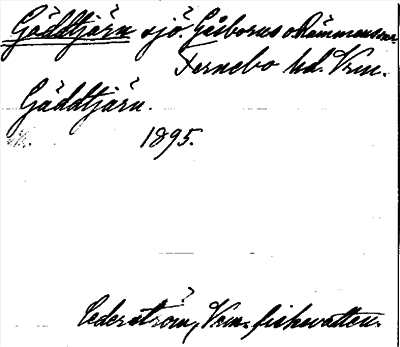 Gäddtjärn sjö Gåsborns o Rämmens snr
Fernebo hd. Vrm.
Gäddtjärn.
1895.
Cederström, Vrm. fiskevatten.